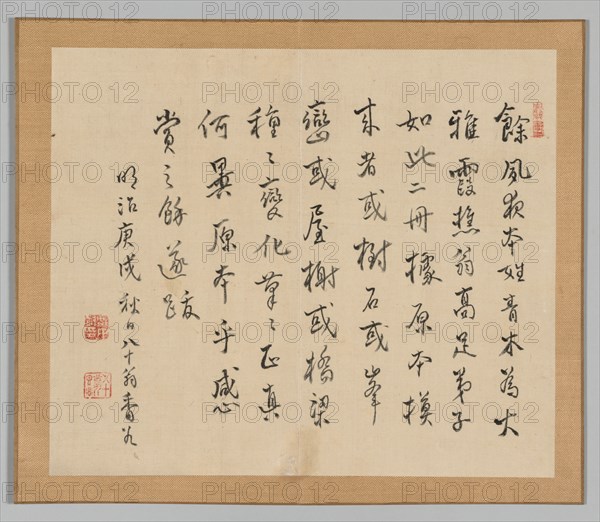 餘夙夜本姓青木為大
雅霞樵翁高足弟子
如此二冊據原本模
來者或樹石或峯
巒或屋榭或橋梁
種〻變化筆〻正真
何異原本乎感
賞之餘遂跋
明治庚戌秋日八十翁香
PHOTO 12